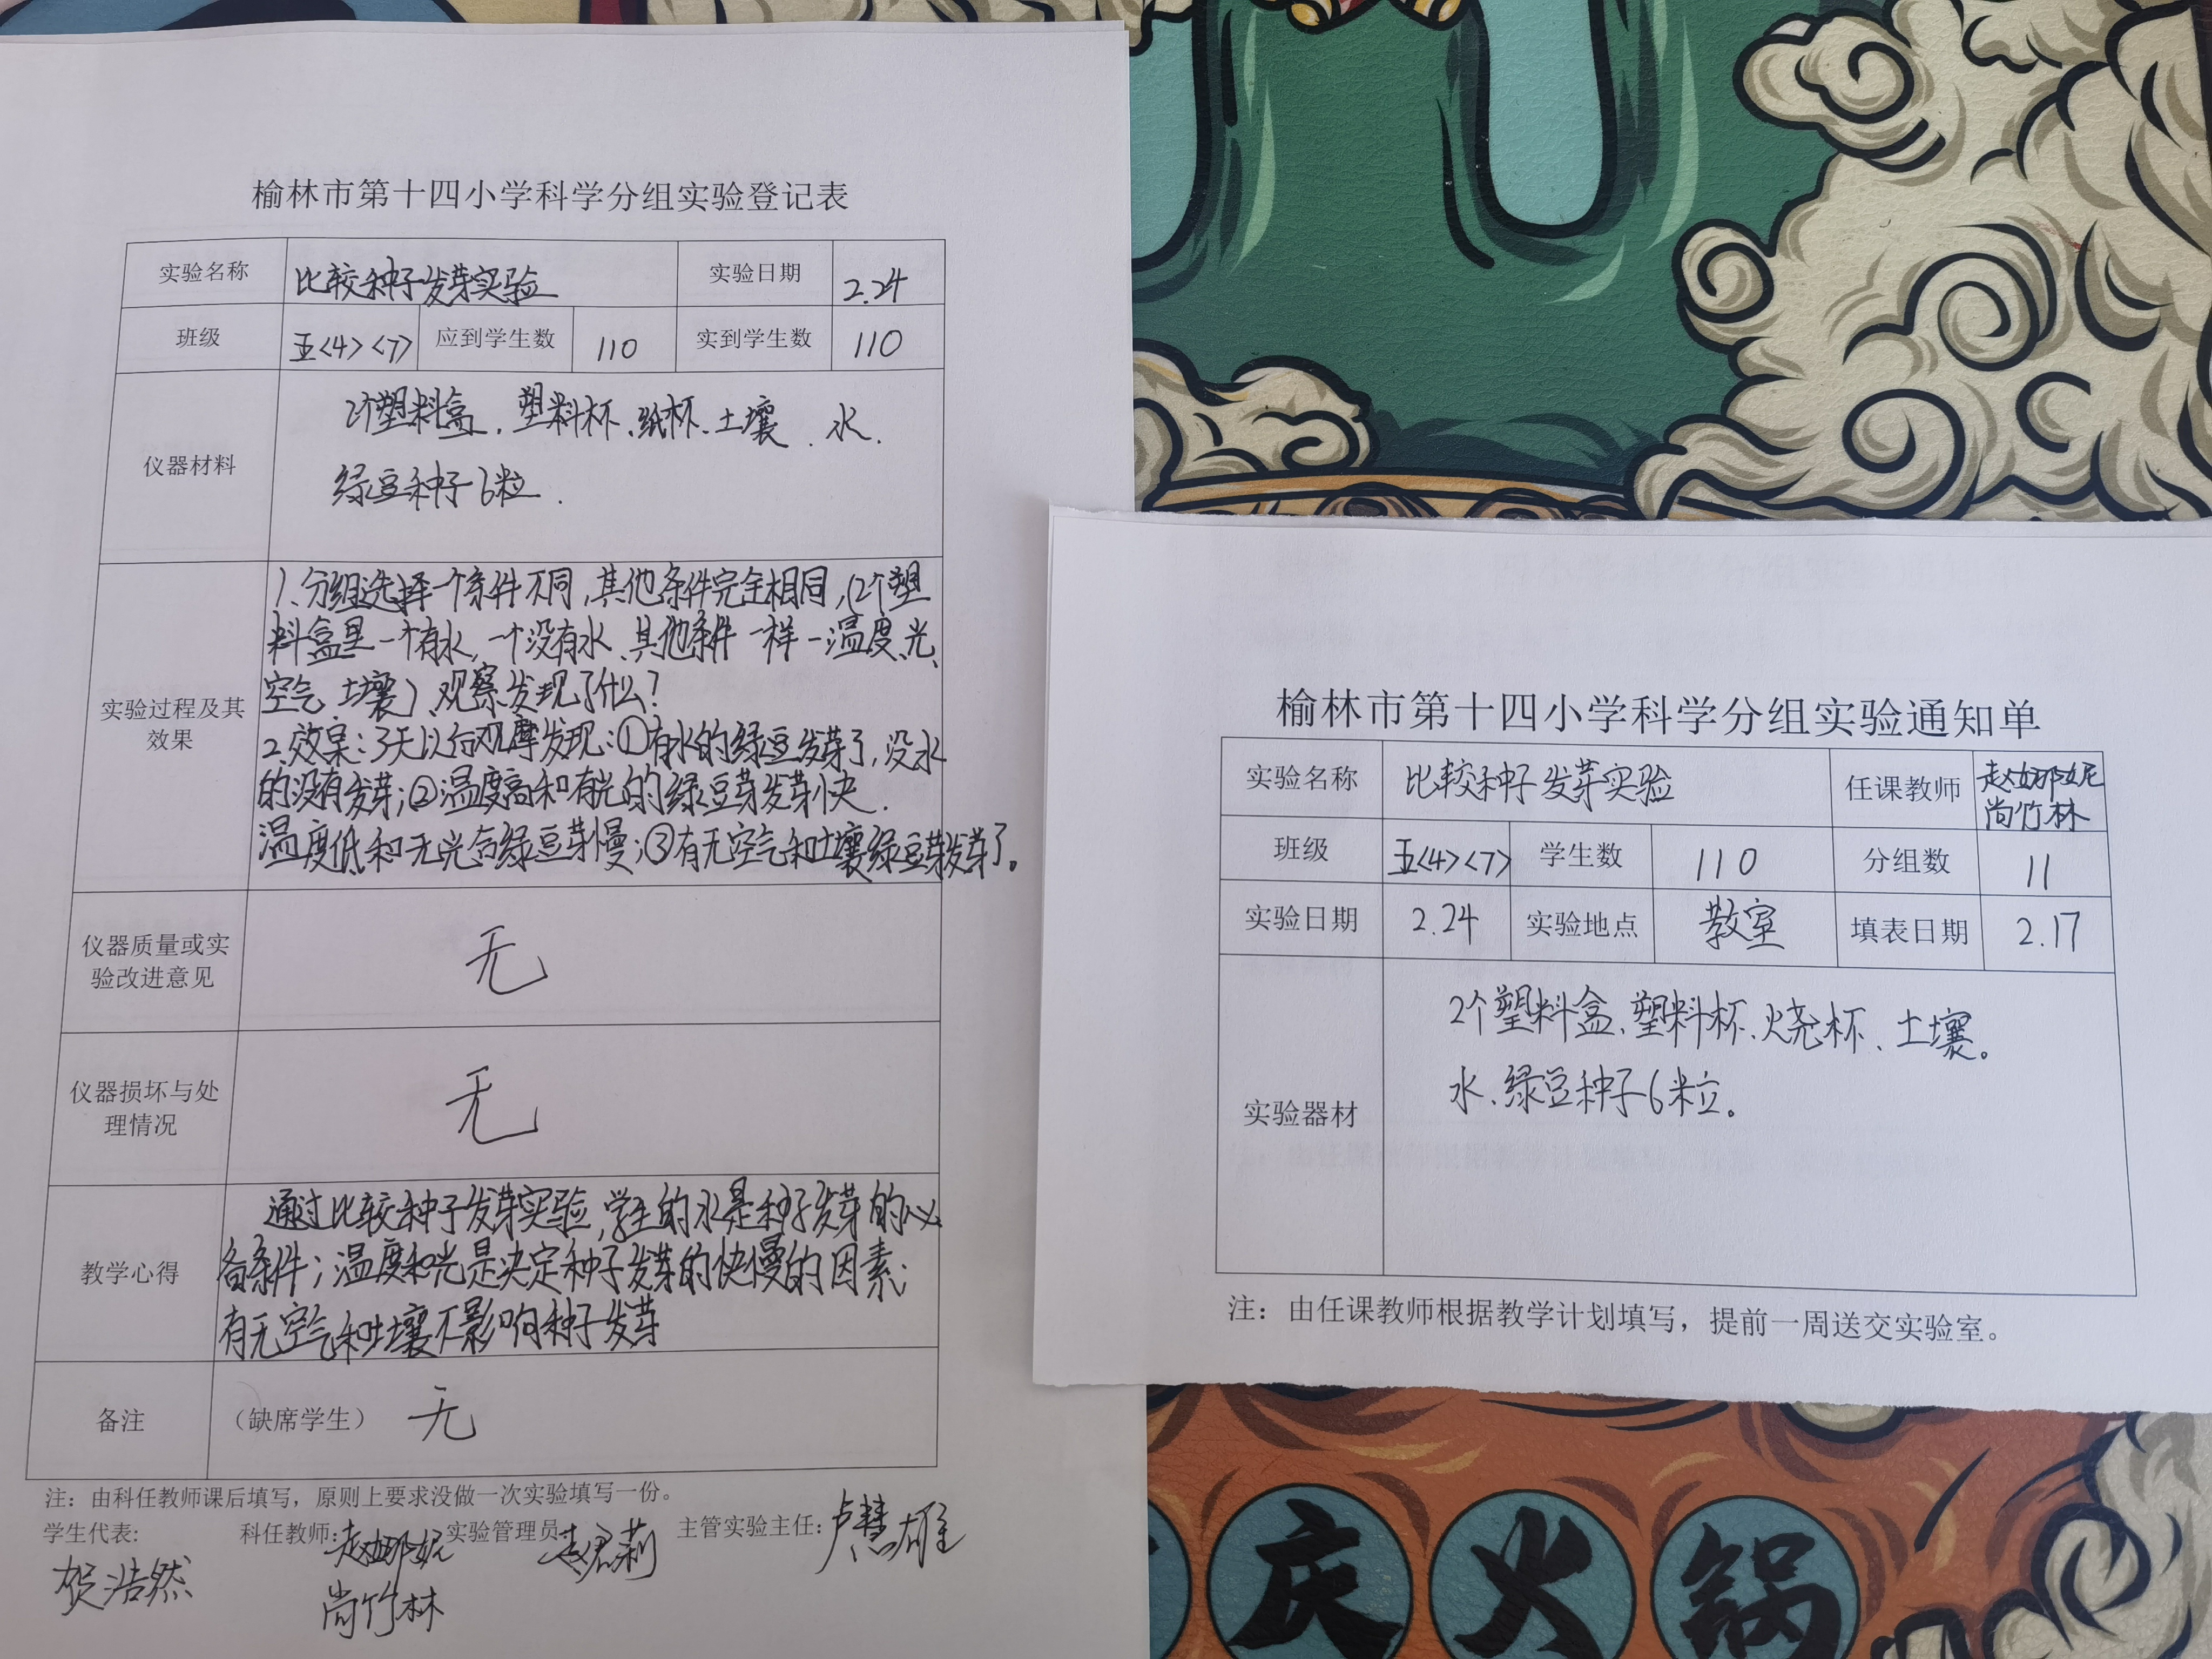 榆林市第十四小学科学分组实验登记表
实验名称 比较种子发芽实验 实验日期 2.24
班级 五<4><7> 应到学生数 110 实到学生数 110
仪器材料
2个塑料盒、塑料杯、纸杯、土壤、水、
绿豆种子6粒.
实验过程及其
效果
1、分组选择一个条件不同,其他条件完全相同,(2个塑
料盒里一个有水,一个没有水、其他条件一样-温度、光、
空气、土壤)、观察发现了什么?
2、效果:3天以后观察发现:①有水的绿豆发芽了,没水
的没有发芽;②温度高和有光的绿豆芽发芽快.
温度低和无光的绿豆芽慢;③有无空气和土壤绿豆芽发芽了。
仪器质量或实
验改进意见
无
仪器损坏与处
理情况
无
教学心得
通过比较种子发芽实验,学生的水是种子发芽的必
备条件;温度和光是决定种子发芽的快慢的因素;
有无空气和土壤不影响种子发芽
备注 (缺席学生) 无
注:由科任教师课后填写,原则上要求没做一次实验填写一份。
学生代表: 科任教师:赵娜妮 实验管理员 主管实验主任:卢慧雄
贺浩然 尚竹林
榆林市第十四小学科学分组实验通知单
实验名称 比较种子发芽实验 任课教师 赵娜妮
尚竹林
班级 五<4><7> 学生数 110 分组数 11
实验日期 2.24 实验地点 教室 填表日期 2.17
实验器材
2个塑料盒、塑料杯、烧杯、土壤。
水、绿豆种子6粒。
注:由任课教师根据教学计划填写,提前一周送交实验室。
庆火锅